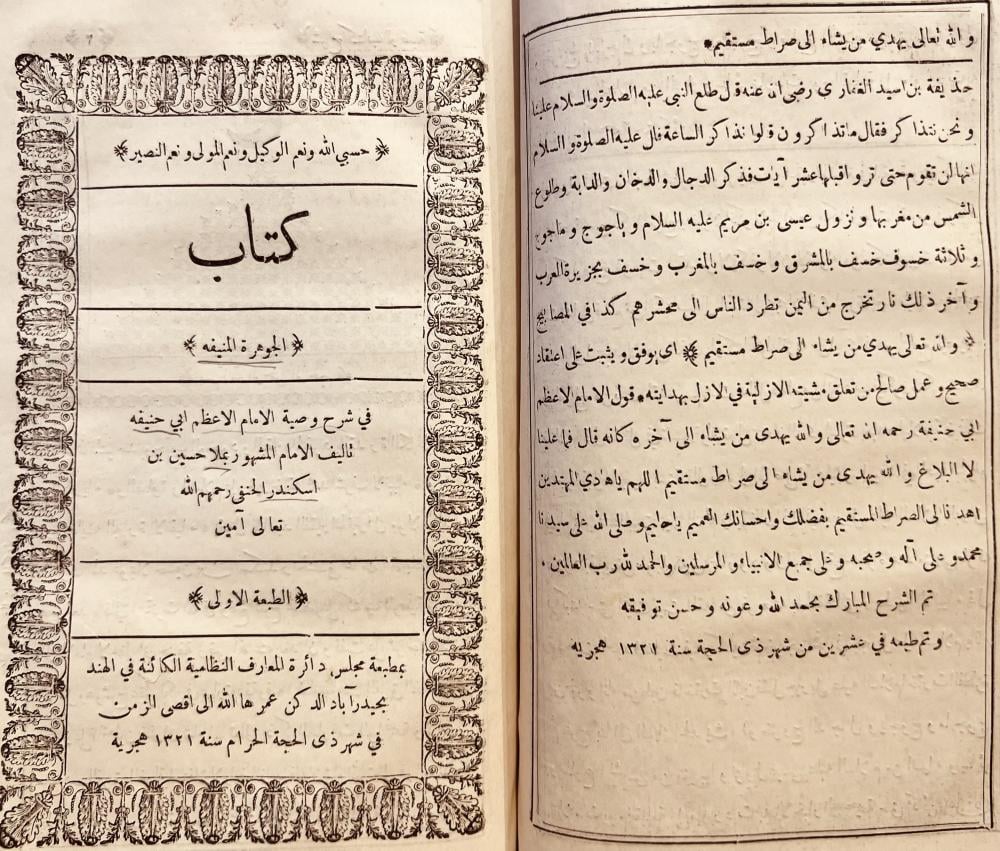 ﴿ حسبي الله ونعم الوكيل ونعم المولى ونعم النصير ﴾
كتاب
﴿ الجوهرة المنيفه ﴾
في شرح وصية الامام الاعظم ابي حنيفه
تاليف الامام المشهور بملا حسين بن
اسكندر الحنفى رحمهم الله
تعالى آمين
﴿ الطبعة الاولى ﴾
بمطبعة مجلس دائرة المعارف النظامية الكائنة في الهند
بحيدرآباد الدكن عمرها الله الى اقصى الزمن
في شهر ذى الحجة الحرام سنة ١٣٢١ هجرية
والله تعالى يهدي من يشاء الى صراط مستقيم *
حذيفة بن اسيد الغفاري رضى الله عنه قال طلع النبي عليه الصلوة والسلام علينا
ونحن نتذاكر فقال ما تذاكرون قالوا نذاكر الساعة قال عليه الصلوة والسلام
انها لن تقوم حتى تروا قبلها عشر آيات فذكر الدجال والدخان والدابة وطلوع
الشمس من مغربها ونزول عيسى بن مريم عليه السلام وياجوج وماجوج
وثلاثة خسوف خسف بالمشرق وخسف بالمغرب وخسف بجزيرة العرب
وآخر ذلك نار تخرج من اليمن تطرد الناس الى محشرهم كذا في المصابيح
﴿ والله تعالى يهدي من يشاء الى صراط مستقيم ﴾ اى يوفق ويثبت على اعتقاد
صحيح وعمل صالح من تعلق مشيته الازلية في الازل بهدايته * قول الامام الاعظم
ابي حنيفة رحمه الله تعالى والله يهدى من يشاء الى آخره كانه قال فما علينا
لا البلاغ والله يهدى من يشاء الى صراط مستقيم اللهم ياهادي المهتدين
اهدنا الى الصراط المستقيم بفضلك واحسانك العميم ياحليم وصلى الله على سيدنا
محمد وعلى آله وصحبه وعلى جميع الانبياء والمرسلين والحمد لله رب العالمين .
تم الشرح المبارك بحمد الله وعونه وحسن توفيقه
وتم طبعه في عشرين من شهر ذى الحجة سنة ١٣٢١ هجريه